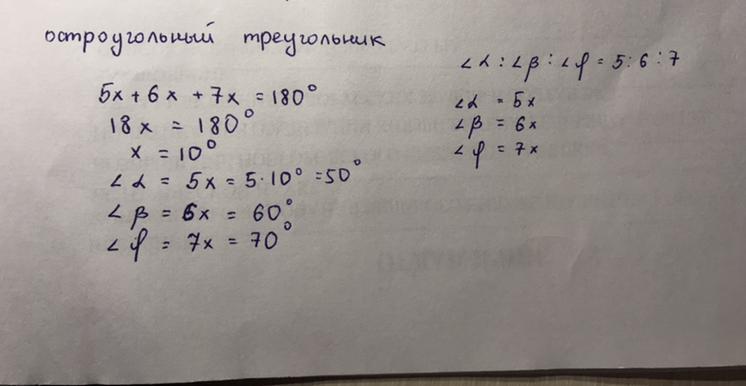 остроугольный треугольник
∠α : ∠β : ∠φ = 5 : 6 : 7
∠α = 5x
∠β = 6x
∠φ = 7x
5x + 6x + 7x = 180°
18x = 180°
x = 10°
∠α = 5x = 5·10° = 50°
∠β = 6x = 60°
∠φ = 7x = 70°